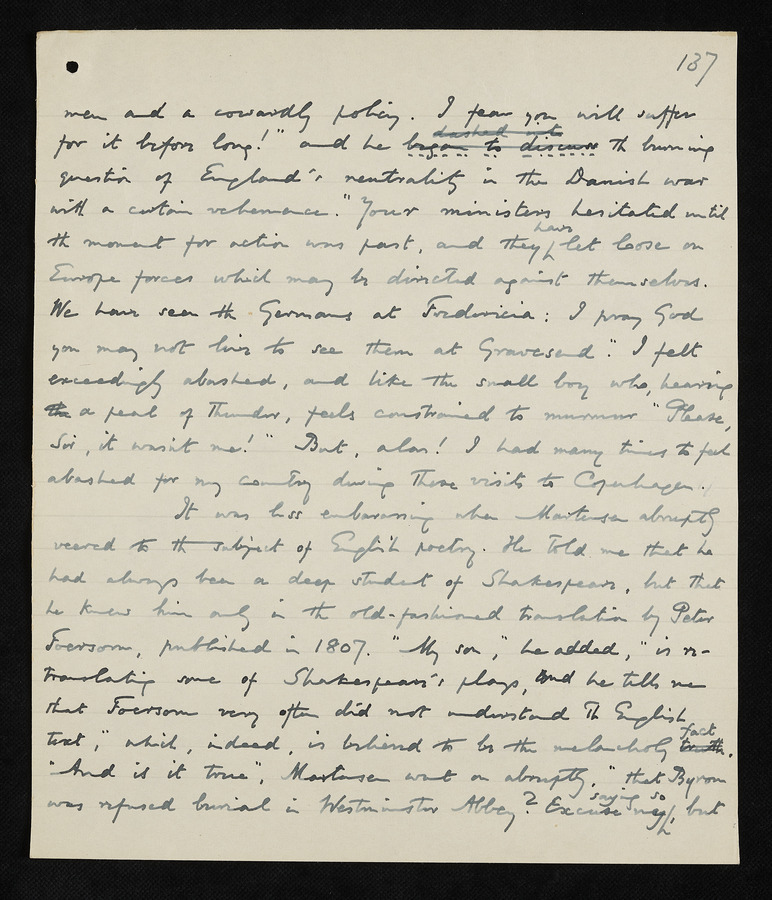 137
men and a cowardly policy. I fear you will suffer
dashed into
for it before long!" and he began to discuss th burning
question of England's neutrality in the Danish war
with a certain vehemence. "Your ministers hesitated until
have
th moment for action was past, and they let loose on
Europe forces which may be directed against themselves.
We have seen th Germans at Fredericia: I pray God
you may not live to see them at Gravesend." I felt
exceedingly abashed, and like the small boy who, hearing
the a peal of Thunder, feels constrained to murmur "Please,
Sir, it wasn't me!" But, alas! I had many times to feel
abashed for my country during those visits to Copenhagen.
It was less embarassing when Martensen abruptly
veered to th subject of English poetry. He told me that he
had always been a deep student of Shakespeare, but that
he knew him only in th old-fashioned translation by Peter
Foersom, published in 1807. "My son," he added, "is re-
translating some of Shakespeare's plays, and he tells me
that Foersom very often did not understand Th English
fact
text," which, indeed, is believed to be the melancholy truth.
"And is it true", Martensen went on abruptly, "that Byron
saying so
was refused burial in Westminster Abbey? Excuse my, but